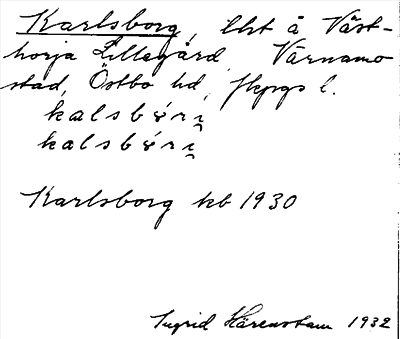 Karlsborg, lht å Väst-
horja Lillegård, Värnamo
stad, Östbo hd, Jkpgs l.
kalsbóri̯
kalsbóri̯
Karlsborg kb 1930
Ingrid Härenstam 1932